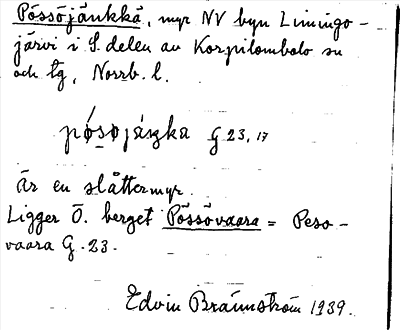 Pössöjänkkä, myr NV byn Limingo-
järvi i S. delen av Korpilombolo sn
och tg, Norrb. l.
pø̀søjáŋka G 23, 17
är en slåttermyr.
Ligger Ö. berget Pössövaara = Peso-
vaara G. 23.
Edvin Brännström 1939.